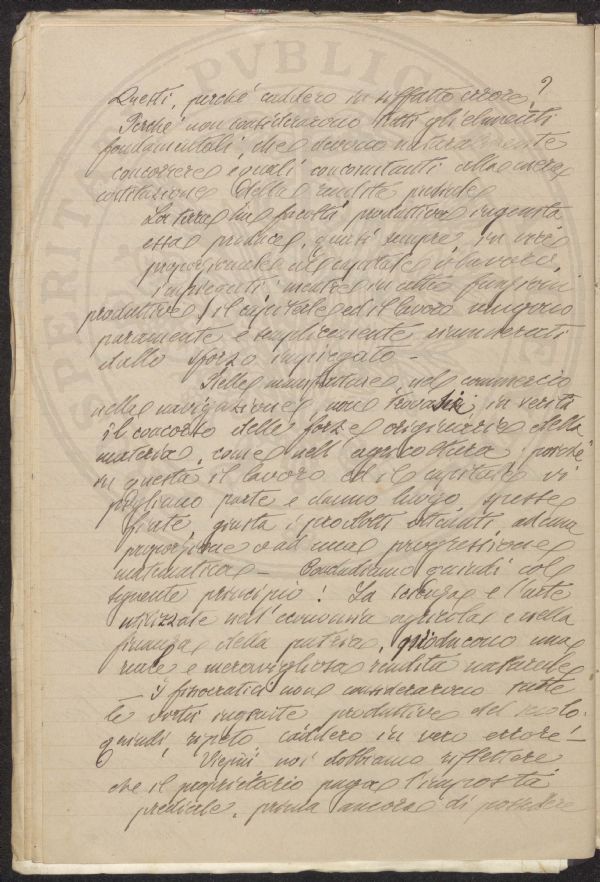 Questi, perché caddero in siffatto errore?
Perché non considerarono tutti gli elementi
fondamentali, che devono naturalmente
concorrere quali concomitanti alla vera
costituzione della rendita prediale
La terra ha facoltà produttiva ingenita
essa produce, quasi sempre, in vere
proporzionate al capitale e lavoro,
impiegati; mentre in altre funzioni
produttive, il capitale ed il lavoro vengono
puramente e semplicemente rimunerati
dallo sforzo impiegato —
Nelle manifatture, nel commercio
nella navigazione, non trovasi, in verità
il concorso delle forze originarie della
materia, come nell'agricoltura: poiché
in questa il lavoro ed il capitale vi
pigliano parte e danno luogo spesse
fiate, giusta i prodotti ad una
proporzione o ad una progressione
matematica — Concludiamo quindi col
seguente principio! La scienza e l'arte
utilizzate nell'economia agricola e nella
finanza della puteria, producono una
reale e meravigliosa rendita naturale
I fisiocratici non considerarono tutte
le virtù ingenite produttive del suolo:
quindi, ripeto caddero in vero errore! —
Vieppiù noi dobbiamo riflettere
che il proprietario paga l'imposta
prediale, prima ancora di possedere
SPERITAS PVBLICA